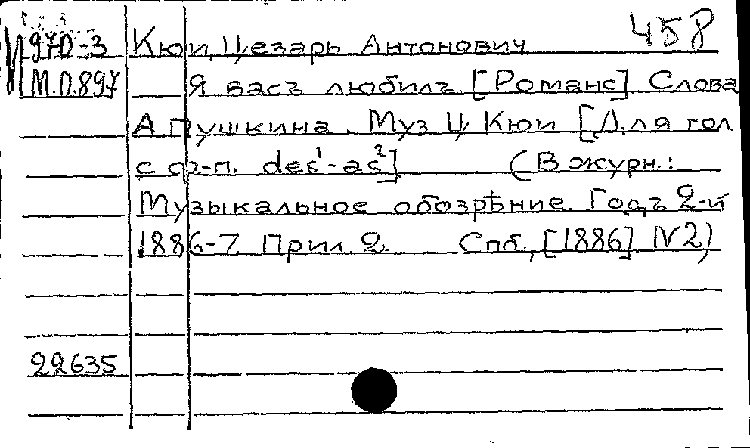 458
97D-3 Кюи, Цезарь Антонович
М.П.897 Я васъ любилъ [Романс] Слова
А Пушкина. Муз Ц. Кюи [Для гол
с ф-п. des¹-as²] (В журн.:
Музыкальное обозрѣние. Годъ 2-й
1886-7 Прил. 2. Спб, [1886] N2)
22635